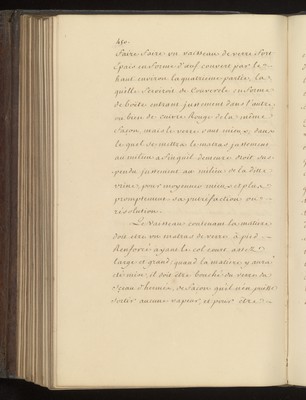 450.
Faire Faire un vaisseau de verre Fort
Epais en forme d'œuf couvert par le
haut environ la quatrieme partie, la
quelle Serviroit de Couvercle en forme
de boëte entrant justement dans l'autre,
ou bien de cuivre Rouge de la même
Façon, mais le verre vaut mieux, dans
le quel se mettra le matras justement
au milieu a fin quil demeure droit sus-
pendu justement au milieu de la ditte
pour moyenner mieux et plus
promptement sa putrefaction ou
résolution.
Le Vaisseau contenant la matiere
doit etre un matras de verre à pied
Renforcé ayant le col court assez
large et grand, quand la matiere y aura
été mise, il doit être bouché du verre du
Sceau d'hermes, de façon qu'il n'en puisse
sortir aucune vapeur, et pour être